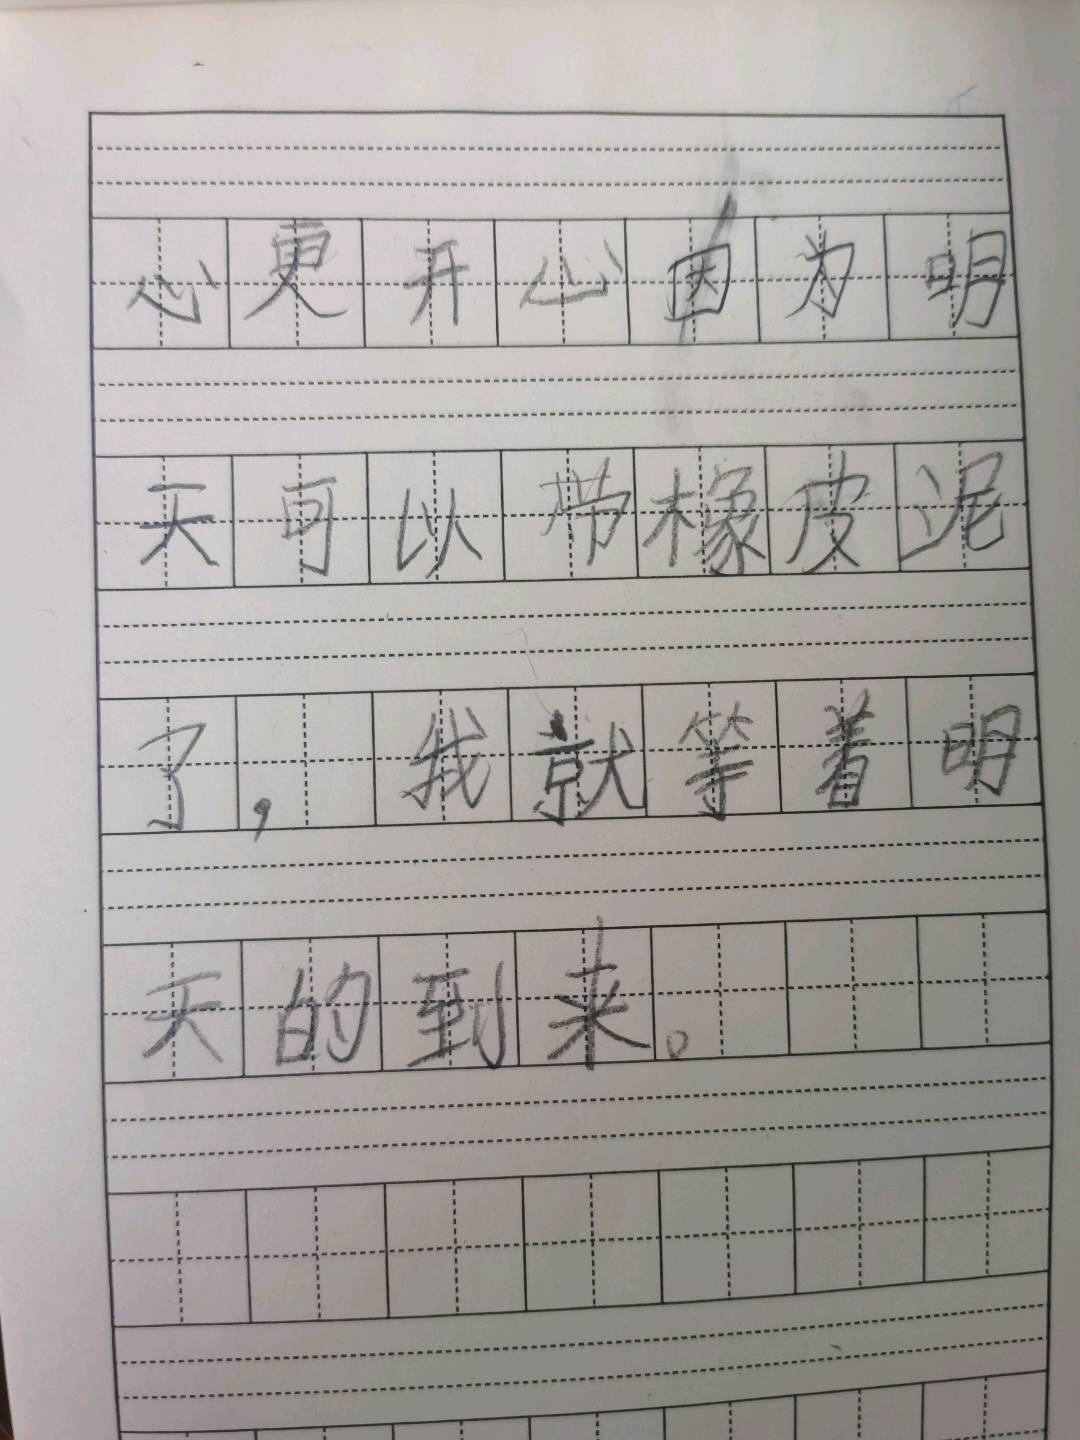 心更开心因为明
天可以带橡皮泥
了，我就等着明
天的到来。